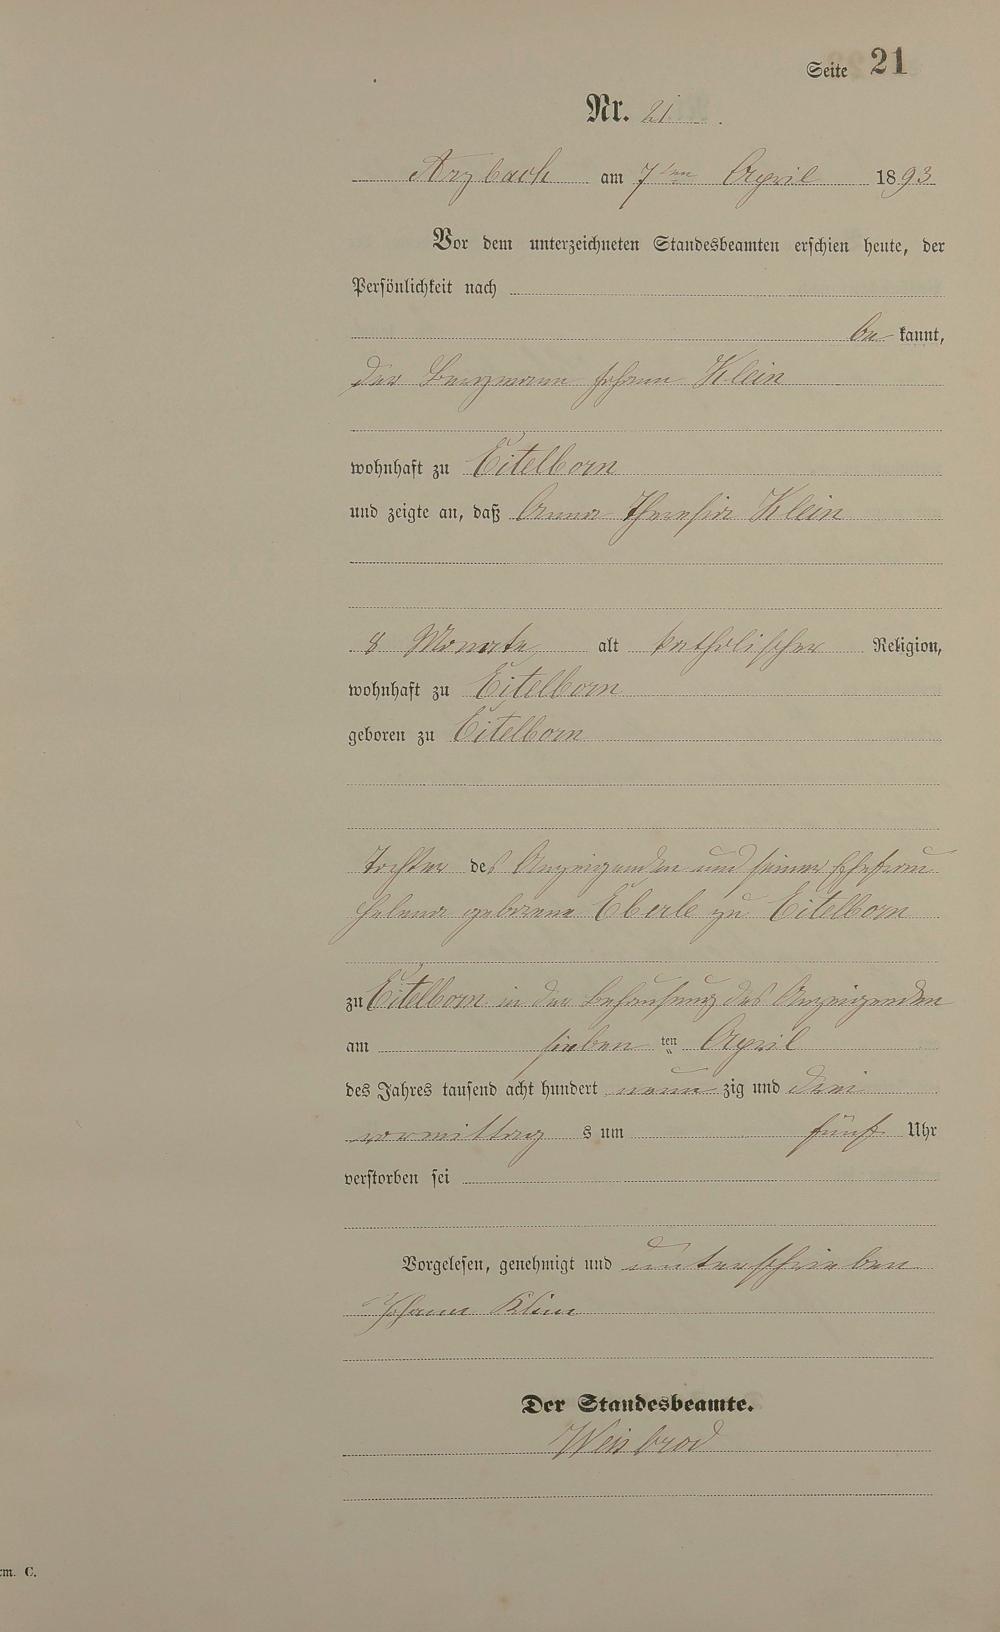 Seite 21
Nr. 21.
Arzbach am 7ten April 1893
Vor dem unterzeichneten Standesbeamten erschien heute, der
Persönlichkeit nach
be kannt,
der Bergmann Johann Klein
wohnhaft zu Eitelborn
und zeigte an, daß Anna Theresia Klein
8 Monate alt katholischer Religion,
wohnhaft zu Eitelborn
geboren zu Eitelborn
Tochter des Anzeigenden und seiner Ehefrau
Helena geborene Eberle zu Eitelborn
zu Eitelborn in der Behausung des Anzeigenden
am sieben ten April
des Jahres tausend acht hundert neun zig und drei
vormittag s um fünf Uhr
verstorben sei
Vorgelesen, genehmigt und unterschrieben
Johann Klein
Der Standesbeamte.
Weisbrod
rm. C.